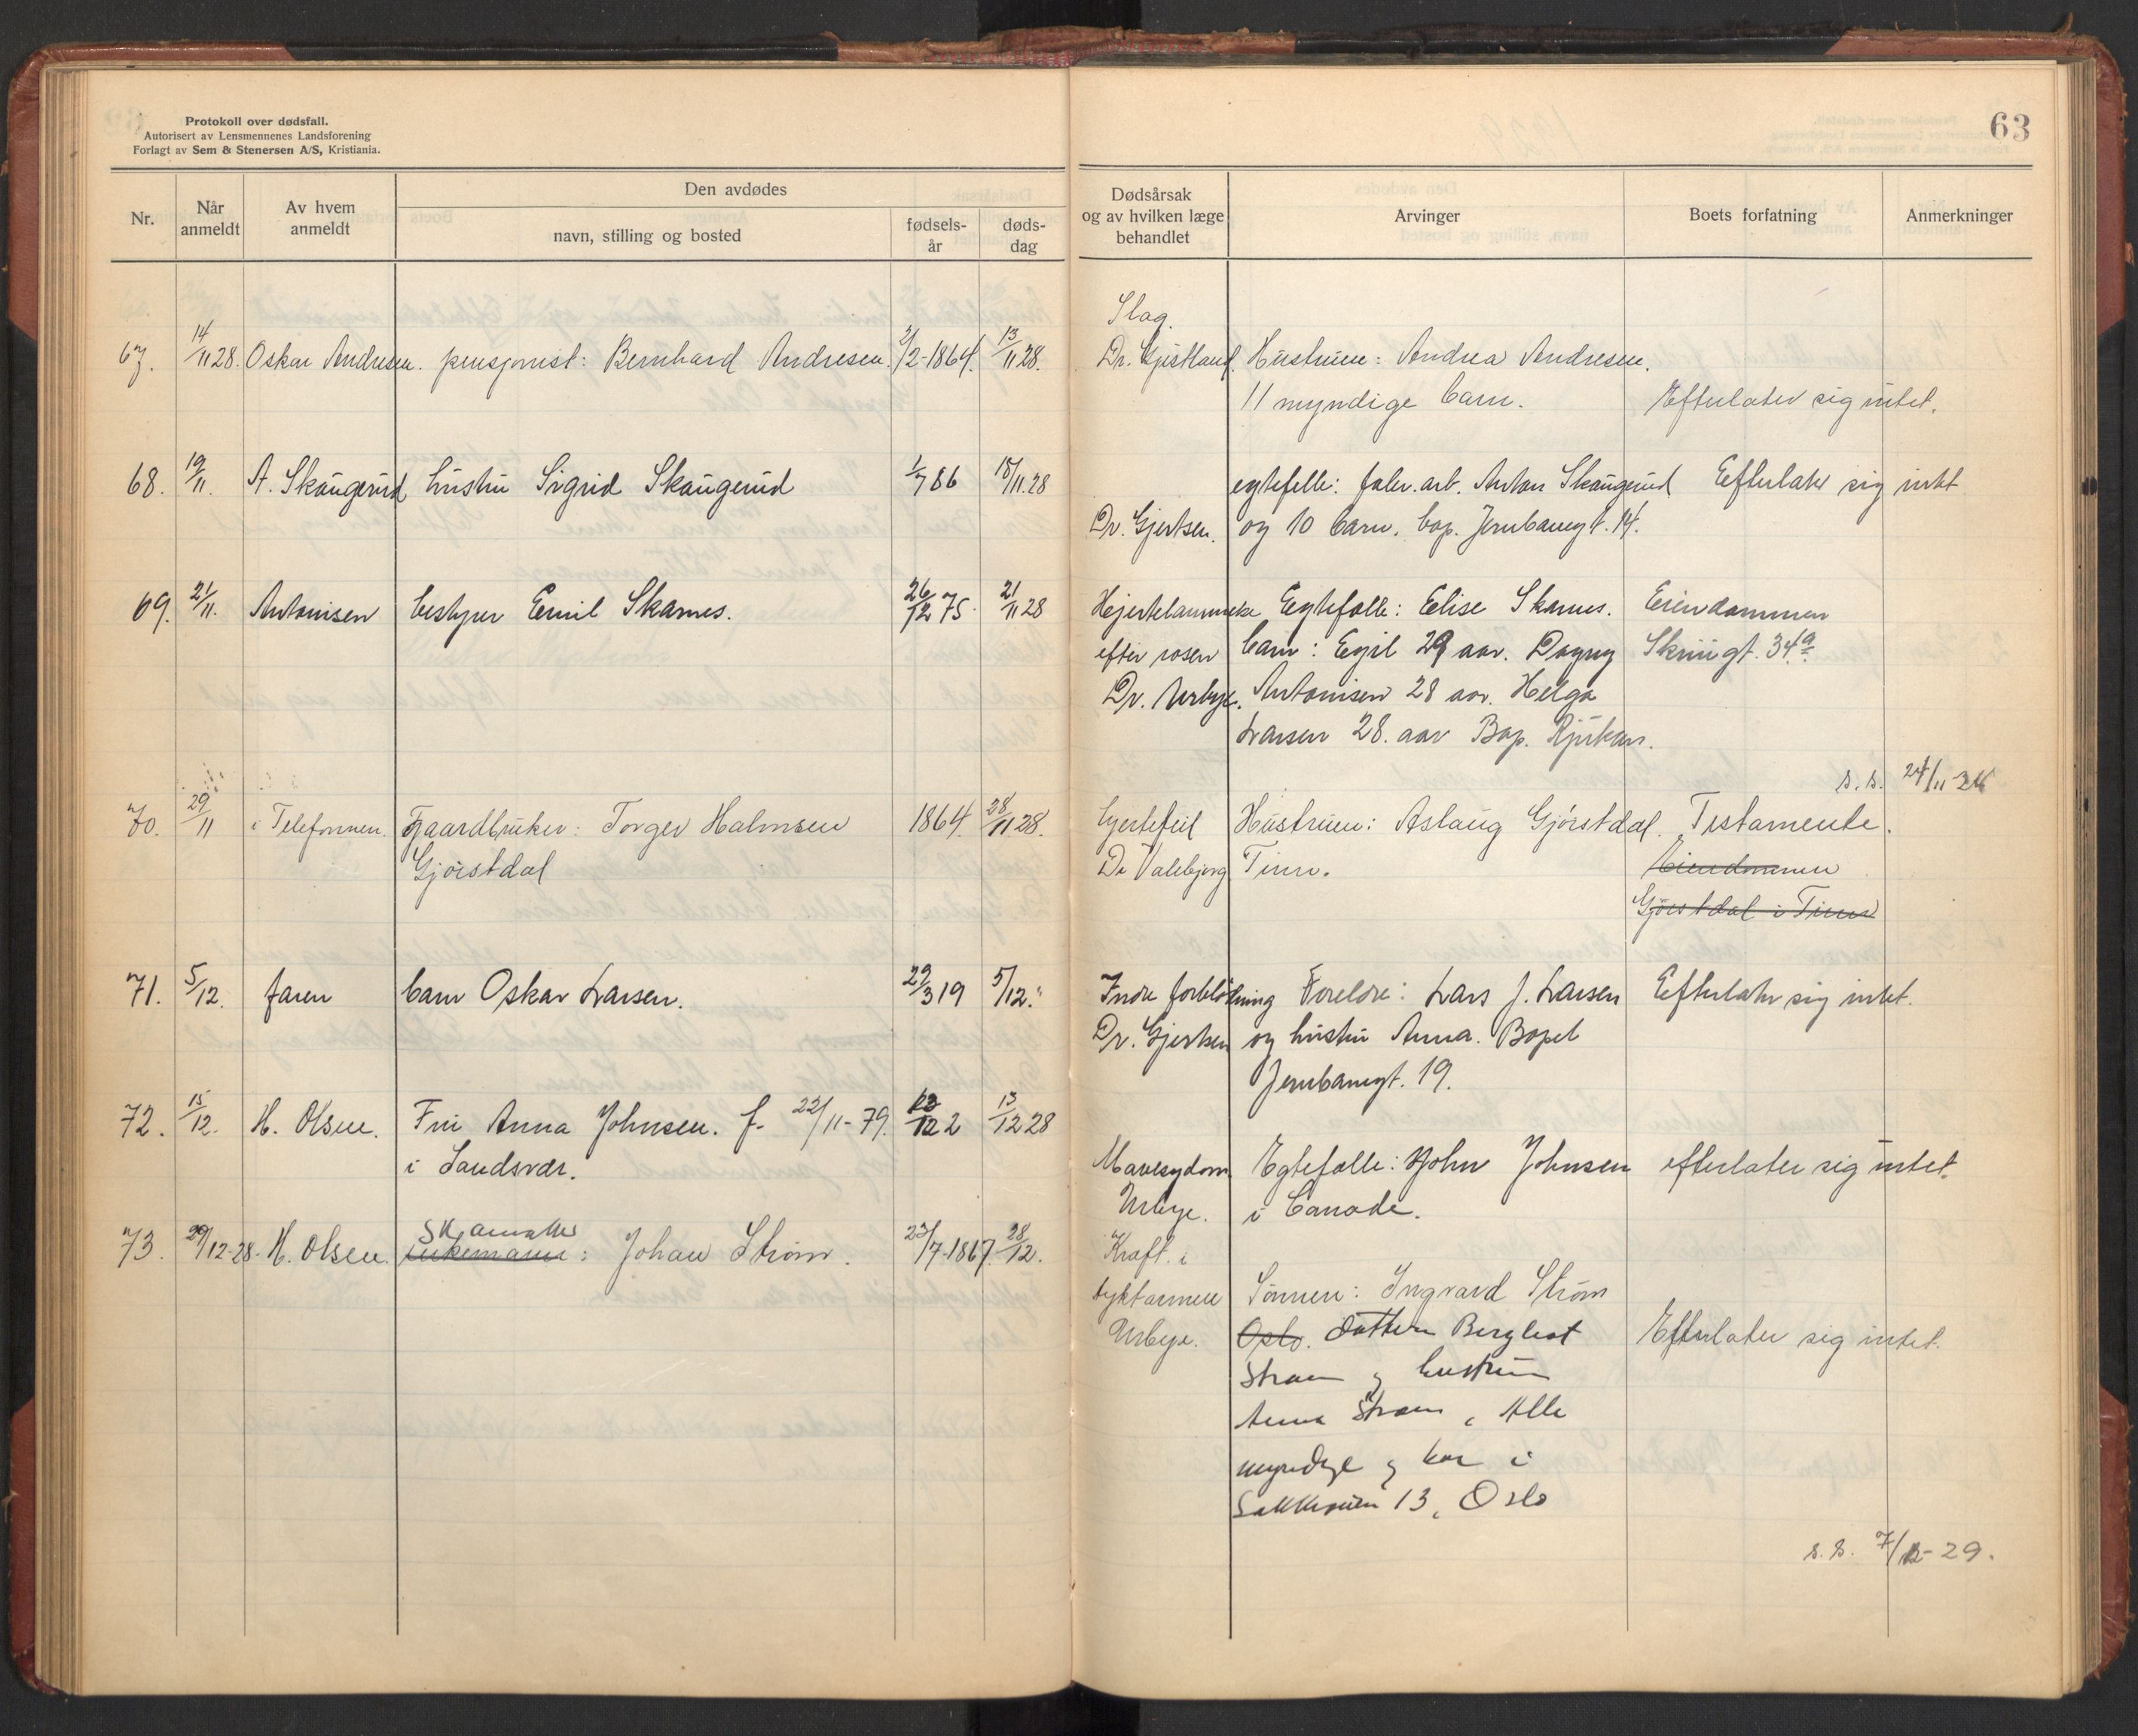 Protokoll over dødsfall.
Autorisert av Lensmennenes Landsforening
Forlagt av Sem & Stenersen A/S, Kristiania.
63
Nr.
Når anmeldt
Av hvem anmeldt
Den avdødes
navn, stilling og bosted
fødsels-år
døds-dag
Dødsårsak og av hvilken læge behandlet
Arvinger
Boets forfatning
Anmerkninger
Slag.
67. 14/11 28. Oskar Andresen. pensjonist: Bernhard Andresen. 3/2-1864. 13/11 28. Dr. Hustruen: Andrea Andresen.
11 myndige barn. Efterlater sig intet.
68. 19/11. A. Skaugerud hustru Sigrid Skaugerud 1/7 86 18/11.28 egtefelle: fabr. arb. Anton Skaugerud Efterlater sig intet
Dr. Gjertsen. og 10 barn. bop. Jernbanegt. 14.
69. 21/11. Antonisen bestyrer Emil Skarnes. 26/12 75. 21/11 28 Hjertelammelse Egtefælle: Elise Skarnes. Eiendommen
efter rosen barn: Egil 29 aar. Dagny Skriugt. 34a.
Dr. Urbye. Antonisen 28 aar. Helga
Larsen 28. aar Bop. Rjukan.
s.s. 24/11-
70. 29/11 i Telefonnen. Gaardbruker: Torger Halvorsen 1864. 28/11 28. hjertefeil Hustruen: Aslaug Gjøistdal. Testamente.
Gjøistdal Dr Valebjørg Tinn. Eiendommen
Gjøistdal i Tinn
71. 5/12. faren barn Oskar Larsen. 29/3 19 5/12." Indre forblødning Foreldre: Lars J. Larsen Efterlater sig intet.
Dr. Gjertsen og hustru Anna. Bopel
Jernbanegt. 19.
72. 15/12. H. Olsen. Fru Anna Johnsen. f. 22/11-79. 13/12 28
i Sandsvær. Mavesygdom Egtefælle: John Johnsen efterlater sig intet.
Urbye. i Canada.
73. 29/12-28. H. Olsen. Skomaker enkemann: Johan Strøm. 23/7-1867. 28/12. Kræft. i
tyktarmen Sønnen: Ingvard Strøm
Urbye. Oslo. datteren Bergliot Efterlater sig intet.
Strøm og hustru
Anna Strøm, Alle
myndige og bor i
13, Oslo
s.s. 7/12-29.